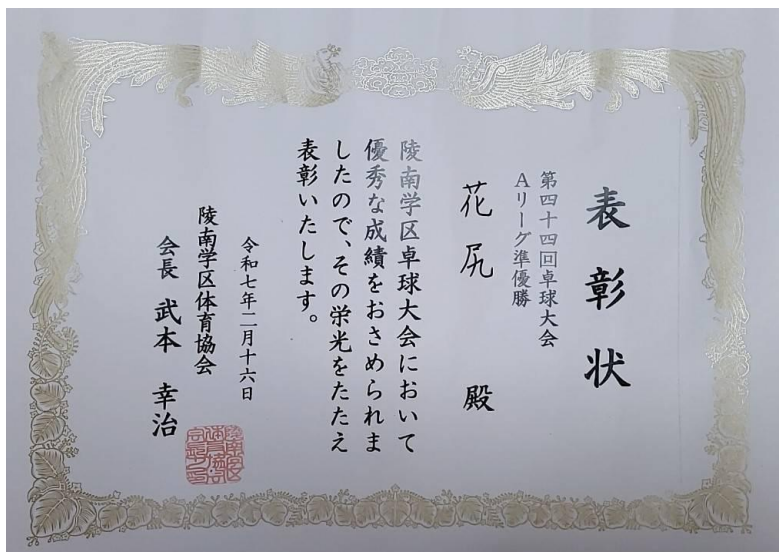 表彰状
第四十四回卓球大会
Aリーグ準優勝
花尻 殿
陵南学区卓球大会において
優秀な成績をおさめられま
したので、その栄光をたたえ
表彰いたします。
令和七年二月十六日
陵南学区体育協会
会長 武本 幸治